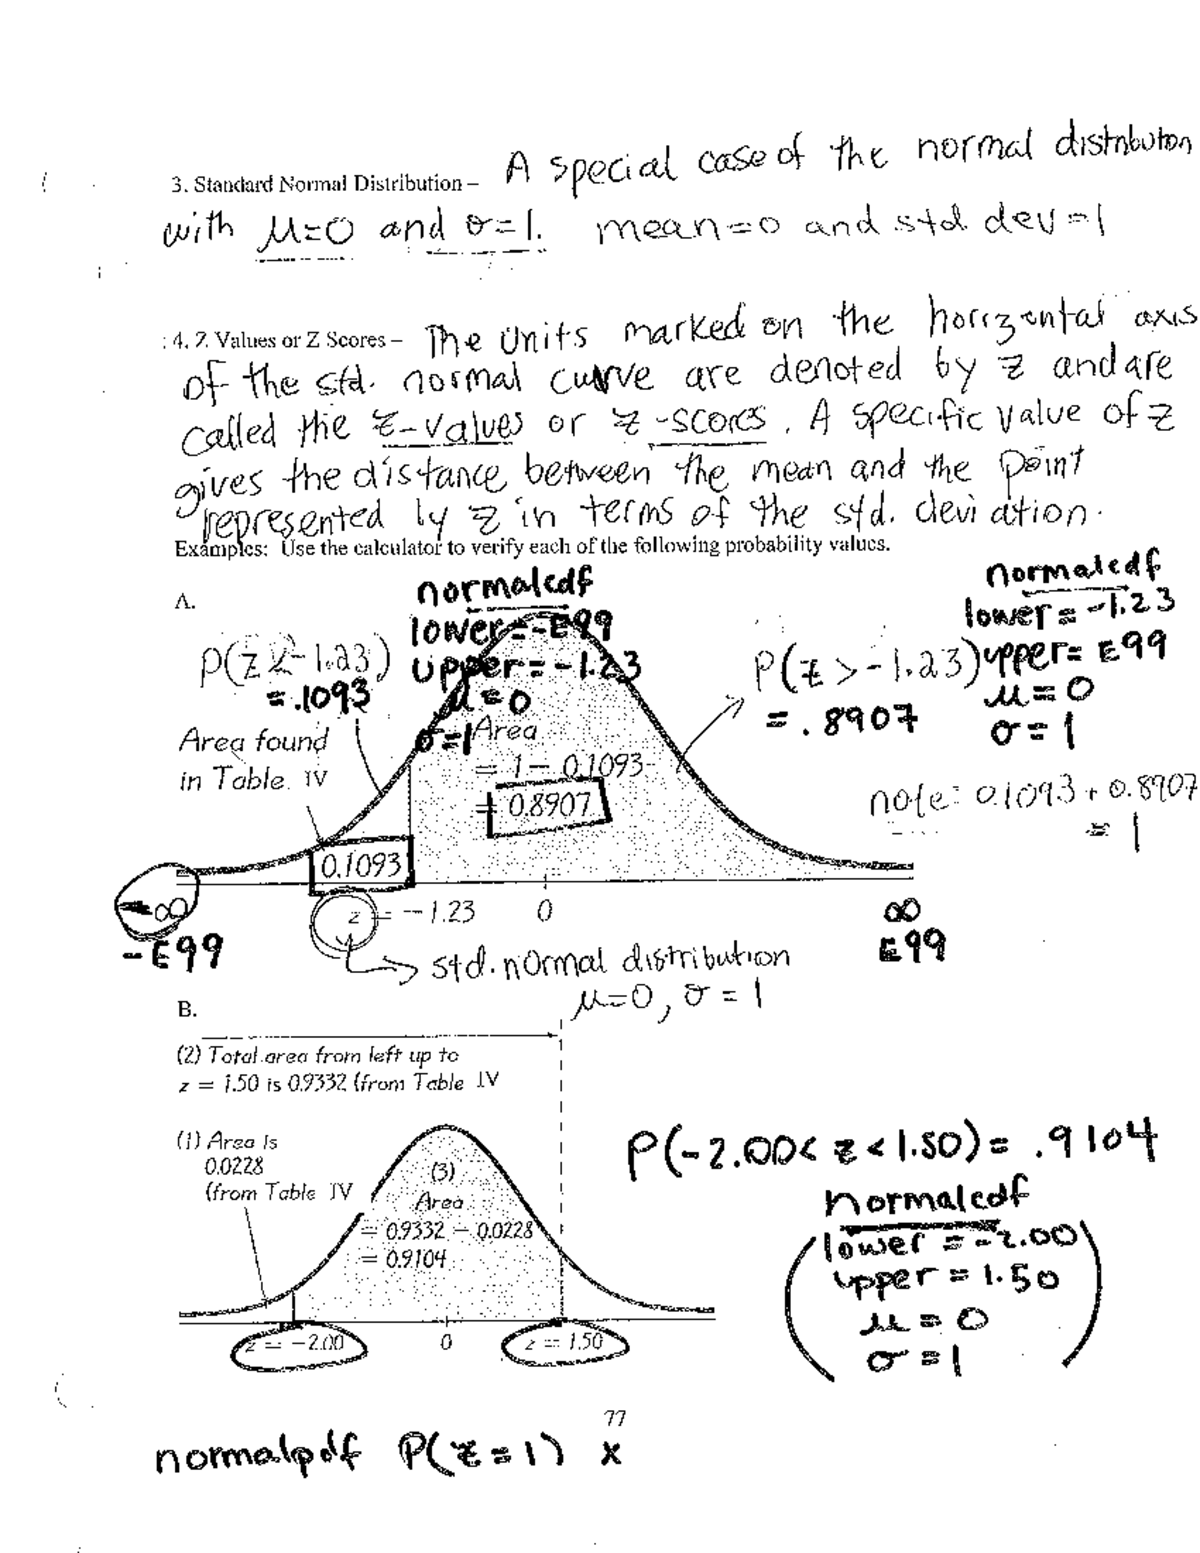 3. Standard Normal Distribution – A special case of the normal distribution
with μ=0 and σ=1. mean=0 and std dev=1
4. Z Values or Z Scores – The Units marked on the horizontal axis
of the std. normal curve are denoted by z and are
called the z-values or z-scores. A specific value of z
gives the distance between the mean and the point
represented by z in terms of the std. deviation.
Examples: Use the calculator to verify each of the following probability values.
A.
normalcdf
lower=-E99
upper=-1.23
μ=0
σ=1
P(z<-1.23)
=.1093
Area found
in Table IV
Area
= 1 − 0.1093
= 0.8907
P(z>-1.23)
=.8907
normalcdf
lower=-1.23
upper=E99
μ=0
σ=1
note: 0.1093+0.8907
=1
0.1093
-∞
z = −1.23
0
∞
-E99
E99
std. normal distribution
μ=0, σ=1
B.
(2) Total area from left up to
z = 1.50 is 0.9332 (from Table IV
(1) Area is
0.0228
(from Table IV
(3)
Area
= 0.9332 − 0.0228
= 0.9104
z = −2.00
0
z = 1.50
P(-2.00<z<1.50)=.9104
normalcdf
lower=-2.00
upper=1.50
μ=0
σ=1
77
normalpdf P(z=1) x